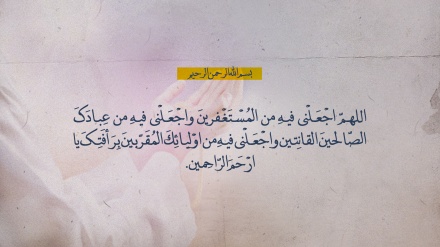 بسم الله الرحمن الرحیم
اللهمّ اجْعَلْنی فیهِ من الْمُسْتَغْفرینَ واجْعَلْنی فیهِ من عِبادَکَ
الصّالحینَ القانِتین واجْعَلْنی فیهِ من اوْلیائِكَ المُقَرّبینَ بِرَأفَتِکَ یا
ارْحَمَ الرّاحِمین.